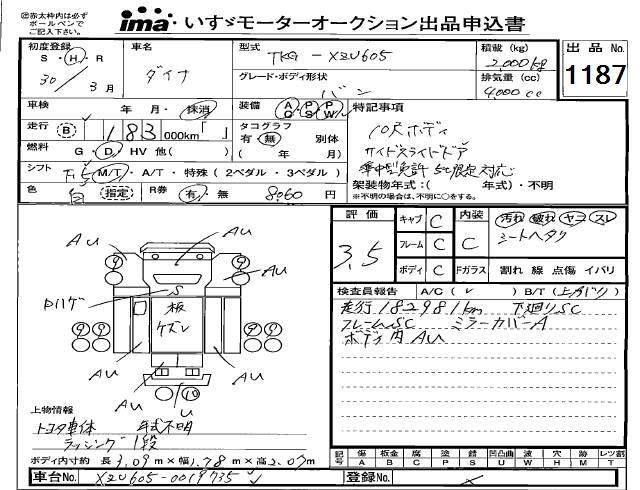 ㊟赤太枠内はボールペンでご記入下さい。
ima・いすゞモーターオークション出品申込書
初度登録 S・H・R 30年 3月
車名 ダイナ
型式 TKG-XZU605
グレード・ボディ形状 バン
積載(kg) 2,000kg
排気量(cc) 4,000cc
出品No. 1187
車検 年 月・抹消
装備 AC PS PW
特記事項
10尺ボディ
サイドスライドドア
準中型免許 5t限定対応
走行 B 183,000km「 」
タコグラフ 有・無 別体 ( 年 月)
燃料 G・D・HV 他( )
シフト F5 M/T・A/T・特殊(2ペダル・3ペダル)
架装物年式:( 年式)・不明
※不明の場合は、不明に○をする。
色 白 指定 R券 有・無 8060円
評価 3.5
キャブ C 内装 C 汚れ 破れ ヤコ スレ
シートヘタリ
フレーム C C
ボディ C Fガラス S 割れ 線 点傷 イバリ
検査員報告 A/C(レ) B/T(上ガリ)
走行182981km 下廻りSC
フレームSC ミラーカバーA
ボディ内AU
AU
AU
AU
9
9
S
Dハゲ
板
ケズレ
9 9
9 9
AU
AU
AU
U
10
上物情報
トヨタ車体 年式不明
ラッシング1段
ボディ内寸約 長3.09m×幅1.78m×高2.07m
記号 傷A 板金B 腐C 塗P 錆S 凹凸曲U 波W 穴H 跡M レツ割T
車台No. XZU605-0019735
登録No. ×